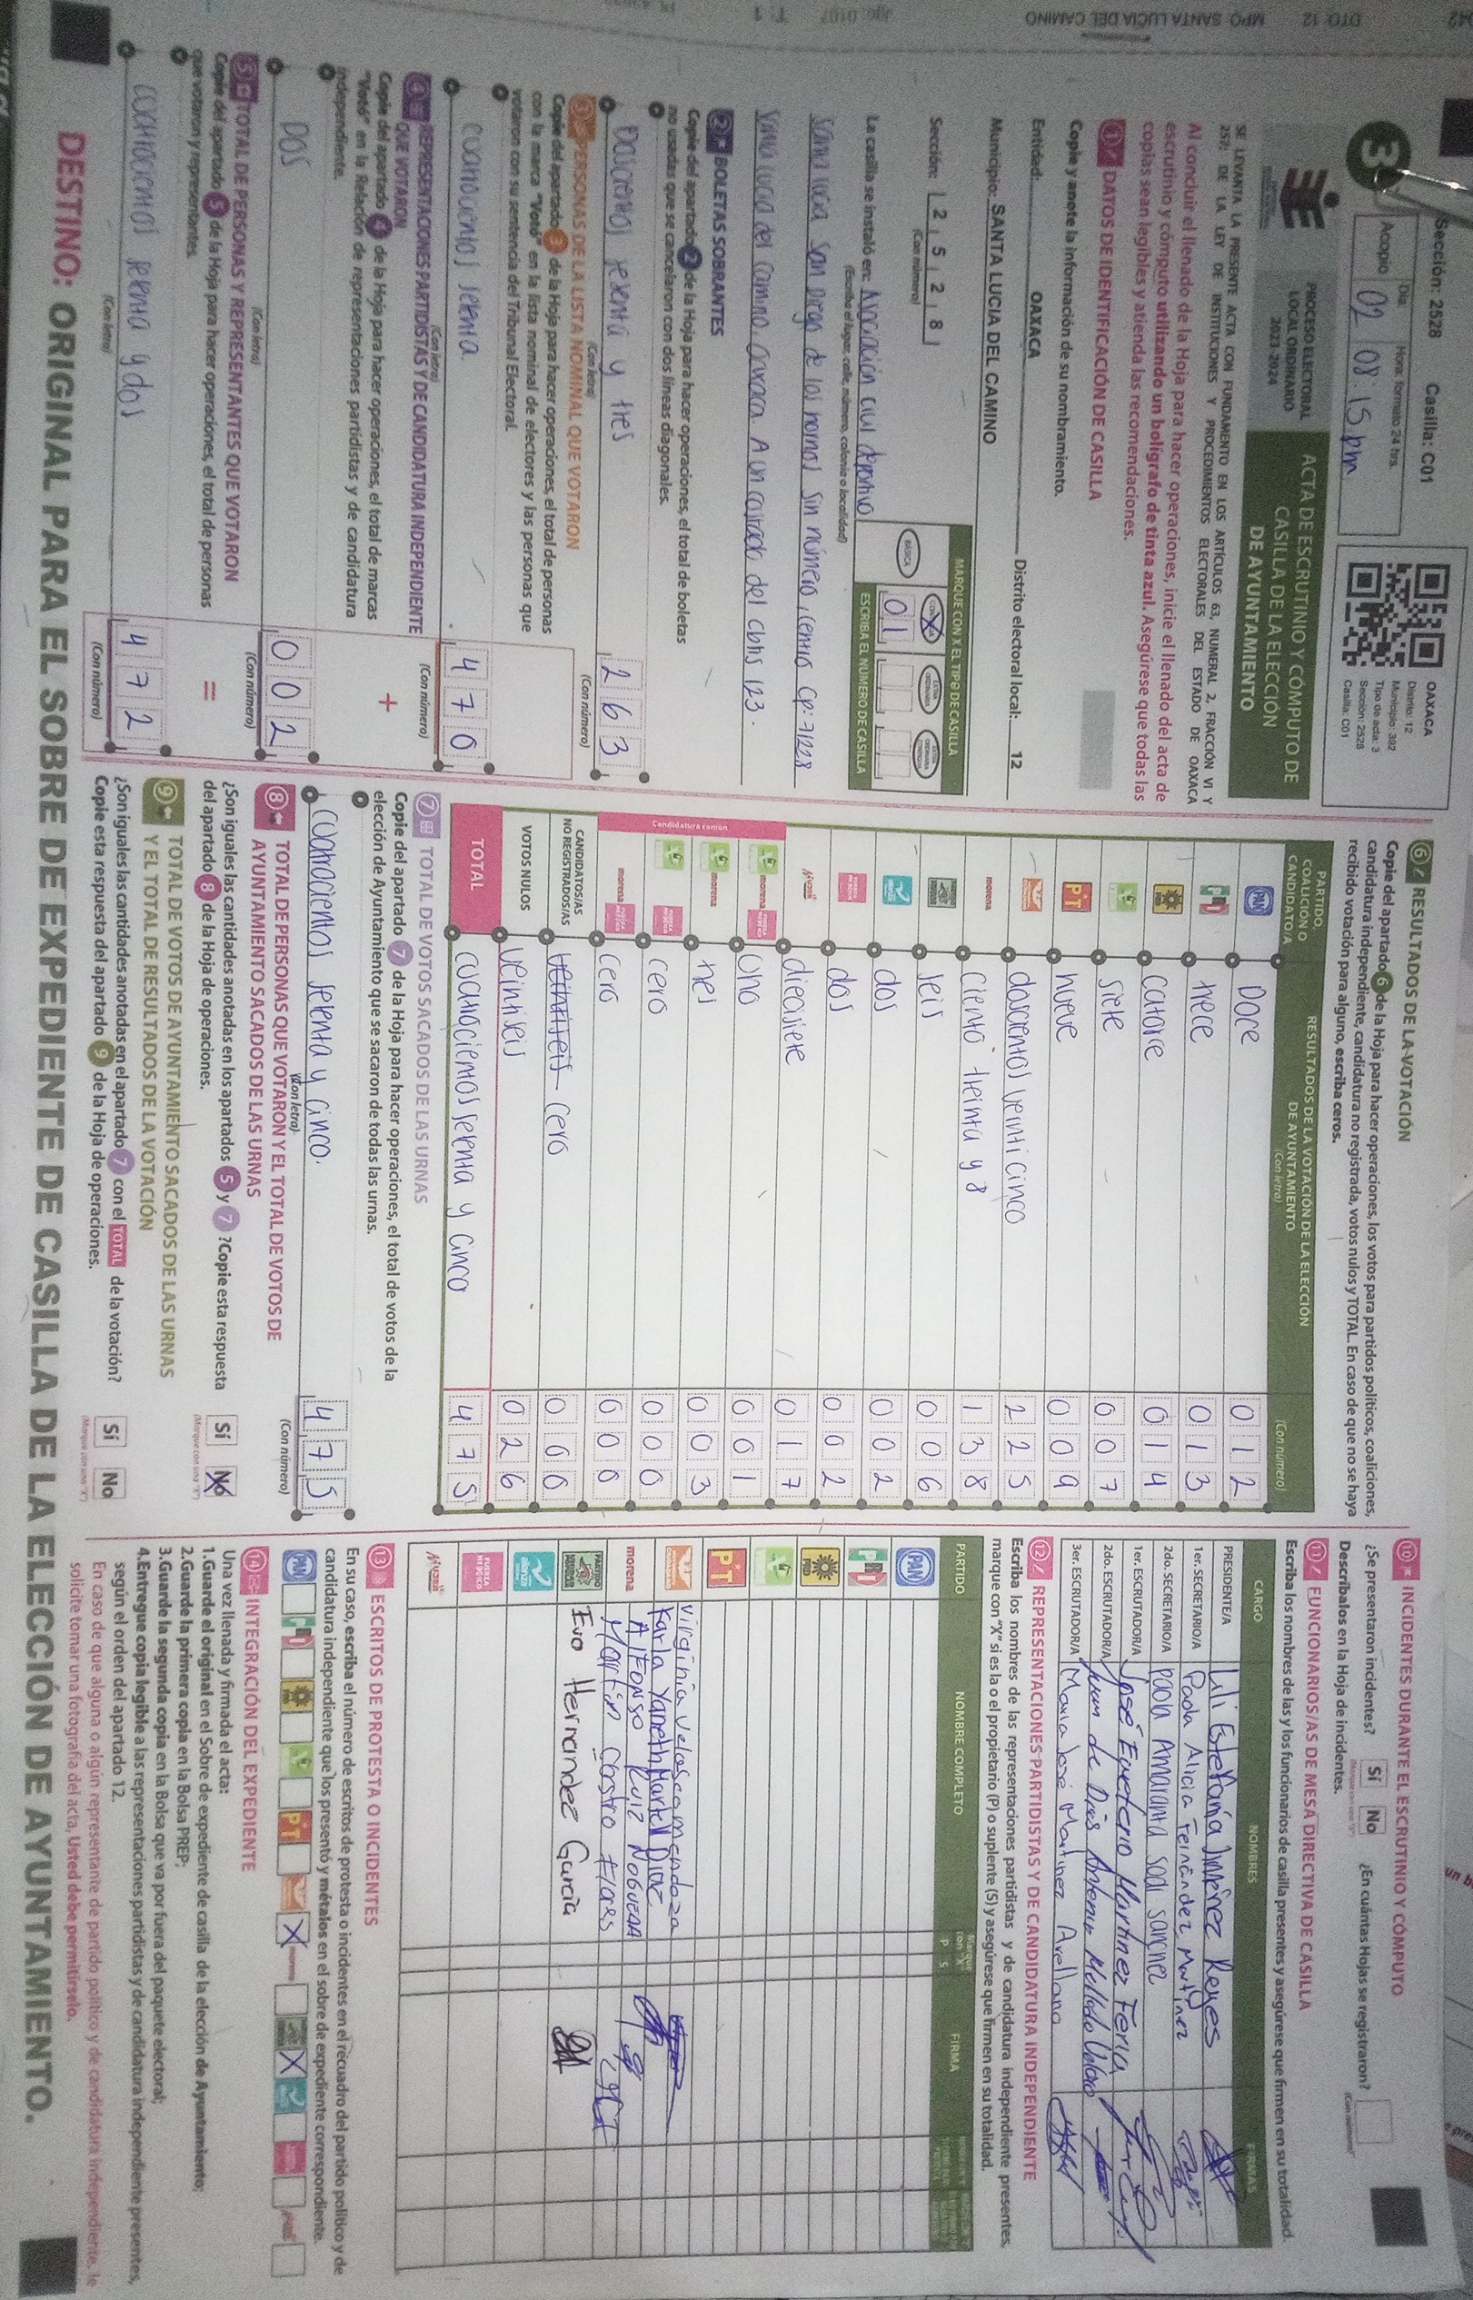 Sección: 2528 Casilla: C01
3
Acopio
Día:
Hora: formato 24 hrs.
02 08:15 pm
OAXACA
Distrito: 12
Municipio: 392
Tipo de acta: 3
Sección: 2528
Casilla: C01
PROCESO ELECTORAL
LOCAL ORDINARIO
2023-2024
ACTA DE ESCRUTINIO Y CÓMPUTO DE
CASILLA DE LA ELECCIÓN
DE AYUNTAMIENTO
SE LEVANTA LA PRESENTE ACTA CON FUNDAMENTO EN LOS ARTÍCULOS 63, NUMERAL 2, FRACCIÓN VI Y
257; DE LA LEY DE INSTITUCIONES Y PROCEDIMIENTOS ELECTORALES DEL ESTADO DE OAXACA
Al concluir el llenado de la Hoja para hacer operaciones, inicie el llenado del acta de
escrutinio y cómputo utilizando un bolígrafo de tinta azul. Asegúrese que todas las
copias sean legibles y atienda las recomendaciones.
1 DATOS DE IDENTIFICACIÓN DE CASILLA
Copie y anote la información de su nombramiento.
Entidad: OAXACA Distrito electoral local: 12
Municipio: SANTA LUCIA DEL CAMINO
Sección: 2 5 2 8
(Con número)
MARQUE CON X EL TIPO DE CASILLA
BÁSICA
X
ESCRIBA EL NÚMERO DE CASILLA
01
La casilla se instaló en: Asociación civil deportivo
(Escriba el lugar, calle, número, colonia o localidad)
santa lucia san Diego de los hornos sin número, centro cp: 71228
santa lucia del camino oaxaca. A un costado del cbtis 123.
2 BOLETAS SOBRANTES
Copie del apartado 2 de la Hoja para hacer operaciones, el total de boletas
no usadas que se cancelaron con dos líneas diagonales.
Doscientos sesenta y tres
263
(Con letra)
(Con número)
3 PERSONAS DE LA LISTA NOMINAL QUE VOTARON
Copie del apartado 3 de la Hoja para hacer operaciones, el total de personas
con la marca "Votó" en la lista nominal de electores y las personas que
votaron con su sentencia del Tribunal Electoral.
cuatrocientos setenta
470
(Con letra)
(Con número)
4 REPRESENTACIONES PARTIDISTAS Y DE CANDIDATURA INDEPENDIENTE
QUE VOTARON
Copie del apartado 4 de la Hoja para hacer operaciones, el total de marcas
"Votó" en la Relación de representaciones partidistas y de candidatura
independiente.
+
DOS
002
(Con letra)
(Con número)
5 TOTAL DE PERSONAS Y REPRESENTANTES QUE VOTARON
Copie del apartado 5 de la Hoja para hacer operaciones, el total de personas
que votaron y representantes.
=
cuatrocientos setenta y dos
472
(Con letra)
(Con número)
6 RESULTADOS DE LA VOTACIÓN
Copie del apartado 6 de la Hoja para hacer operaciones, los votos para partidos políticos, coaliciones,
candidatura independiente, candidatura no registrada, votos nulos y TOTAL. En caso de que no se haya
recibido votación para alguno, escriba ceros.
PARTIDO,
COALICIÓN O
CANDIDATO/A
RESULTADOS DE LA VOTACIÓN DE LA ELECCIÓN
DE AYUNTAMIENTO
(Con letra)
(Con número)
PAN Doce 012
PRI trece 013
PRD catorce 014
siete 007
PT nueve 009
doscientos veinticinco 225
morena ciento treinta y 8 138
seis 006
dos 002
dos 002
diecisiete 017
Candidatura común
morena uno 001
morena tres 003
cero 000
morena cero 000
CANDIDATOS/AS
NO REGISTRADOS/AS veintiseis cero 000
VOTOS NULOS veintiseis 026
TOTAL cuatrocientos setenta y cinco 475
7 TOTAL DE VOTOS SACADOS DE LAS URNAS
Copie del apartado 7 de la Hoja para hacer operaciones, el total de votos de la
elección de Ayuntamiento que se sacaron de todas las urnas.
cuatrocientos setenta y cinco.
475
(Con letra)
(Con número)
8 TOTAL DE PERSONAS QUE VOTARON Y EL TOTAL DE VOTOS DE
AYUNTAMIENTO SACADOS DE LAS URNAS
¿Son iguales las cantidades anotadas en los apartados 5 y 7 ? Copie esta respuesta
del apartado 8 de la Hoja de operaciones.
Sí No
(Marque con una "X")
9 TOTAL DE VOTOS DE AYUNTAMIENTO SACADOS DE LAS URNAS
Y EL TOTAL DE RESULTADOS DE LA VOTACIÓN
¿Son iguales las cantidades anotadas en el apartado 7 con el TOTAL de la votación?
Copie esta respuesta del apartado 9 de la Hoja de operaciones.
Sí No
(Marque con una "X")
10 INCIDENTES DURANTE EL ESCRUTINIO Y CÓMPUTO
¿Se presentaron incidentes? Sí No ¿En cuántas Hojas se registraron?
(Con número)
Descríbalos en la Hoja de incidentes.
11 FUNCIONARIOS/AS DE MESA DIRECTIVA DE CASILLA
Escriba los nombres de las y los funcionarios de casilla presentes y asegúrese que firmen en su totalidad.
CARGO NOMBRES FIRMAS
PRESIDENTE/A Lili Estefanía Jiménez Reyes
1er. SECRETARIO/A Paola Alicia Fernández Martínez
2do. SECRETARIO/A Paola Amaranta Sodi Sanchez
1er. ESCRUTADOR/A José Eucterio Martinez Feria
2do. ESCRUTADOR/A Juan de Dios Antonio
3er. ESCRUTADOR/A Maria José Martinez Avellano
12 REPRESENTACIONES PARTIDISTAS Y DE CANDIDATURA INDEPENDIENTE
Escriba los nombres de las representaciones partidistas y de candidatura independiente presentes,
marque con "X" si es la o el propietario (P) o suplente (S) y asegúrese que firmen en su totalidad.
PARTIDO NOMBRE COMPLETO P S FIRMA
PAN
PRI
PRD
PT
virginia velasco mendoza
Karla Yaneth Martell Diaz
morena Alfonso Ruiz Noguera
Martin Castro Flores
Ivo Hernandez Garcia
13 ESCRITOS DE PROTESTA O INCIDENTES
En su caso, escriba el número de escritos de protesta o incidentes en el recuadro del partido político y de
candidatura independiente que los presentó y métalos en el sobre de expediente correspondiente.
PAN PRI PRD PT X morena X
14 INTEGRACIÓN DEL EXPEDIENTE
Una vez llenada y firmada el acta:
1.Guarde el original en el Sobre de expediente de casilla de la elección de Ayuntamiento;
2.Guarde la primera copia en la Bolsa PREP;
3.Guarde la segunda copia en la Bolsa que va por fuera del paquete electoral;
4.Entregue copia legible a las representaciones partidistas y de candidatura independiente presentes,
según el orden del apartado 12.
En caso de que alguna o algún representante de partido político y de candidatura independiente, le
solicite tomar una fotografía del acta, Usted debe permitírselo.
DESTINO: ORIGINAL PARA EL SOBRE DE EXPEDIENTE DE CASILLA DE LA ELECCIÓN DE AYUNTAMIENTO.
DTO: 12 MPO: SANTA LUCIA DEL CAMINO